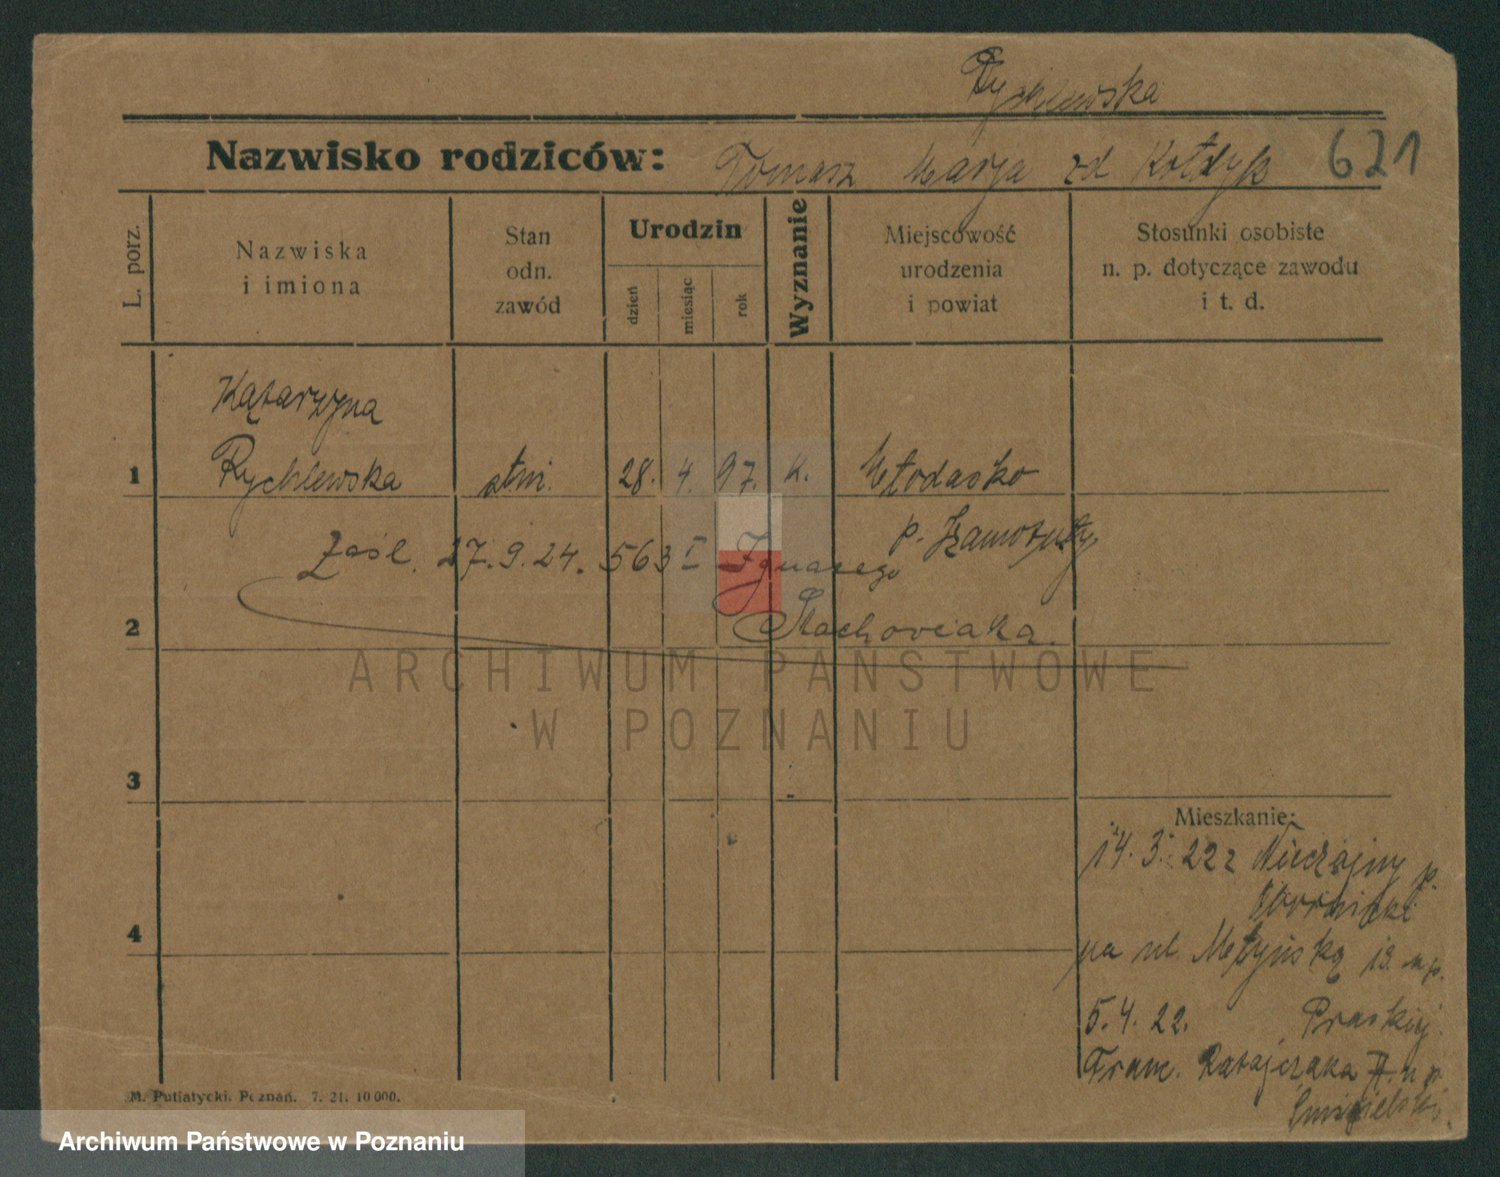 Rychlewska
Nazwisko rodziców: Tomasz Marja od Kołdyk 621
L. porz.
Nazwiska
i imiona
Stan
odn.
zawód
Urodzin
dzień
miesiąc
rok
Wyznanie
Miejscowość
urodzenia
i powiat
Stosunki osobiste
n. p. dotyczące zawodu
i t. d.
Kątarzyna
1 Rychlewska służ. 28. 4. 97. K. Młodasko
p. Szamotuły
Zaśl. 27.9.24. 563 I Ignacego
2 Stachowiaka.
ARCHIWUM PAŃSTWOWE
W POZNANIU
3
Mieszkanie:
14. 3. 22 z Nieczajny p.
Obornicki
4
na ul. Młyńską 13. u p.
5. 4. 22. Pruskiej.
Franc. Ratajczaka u p
M. Putiatycki. Poznań. 7. 21. 10 000.
Archiwum Państwowe w Poznaniu